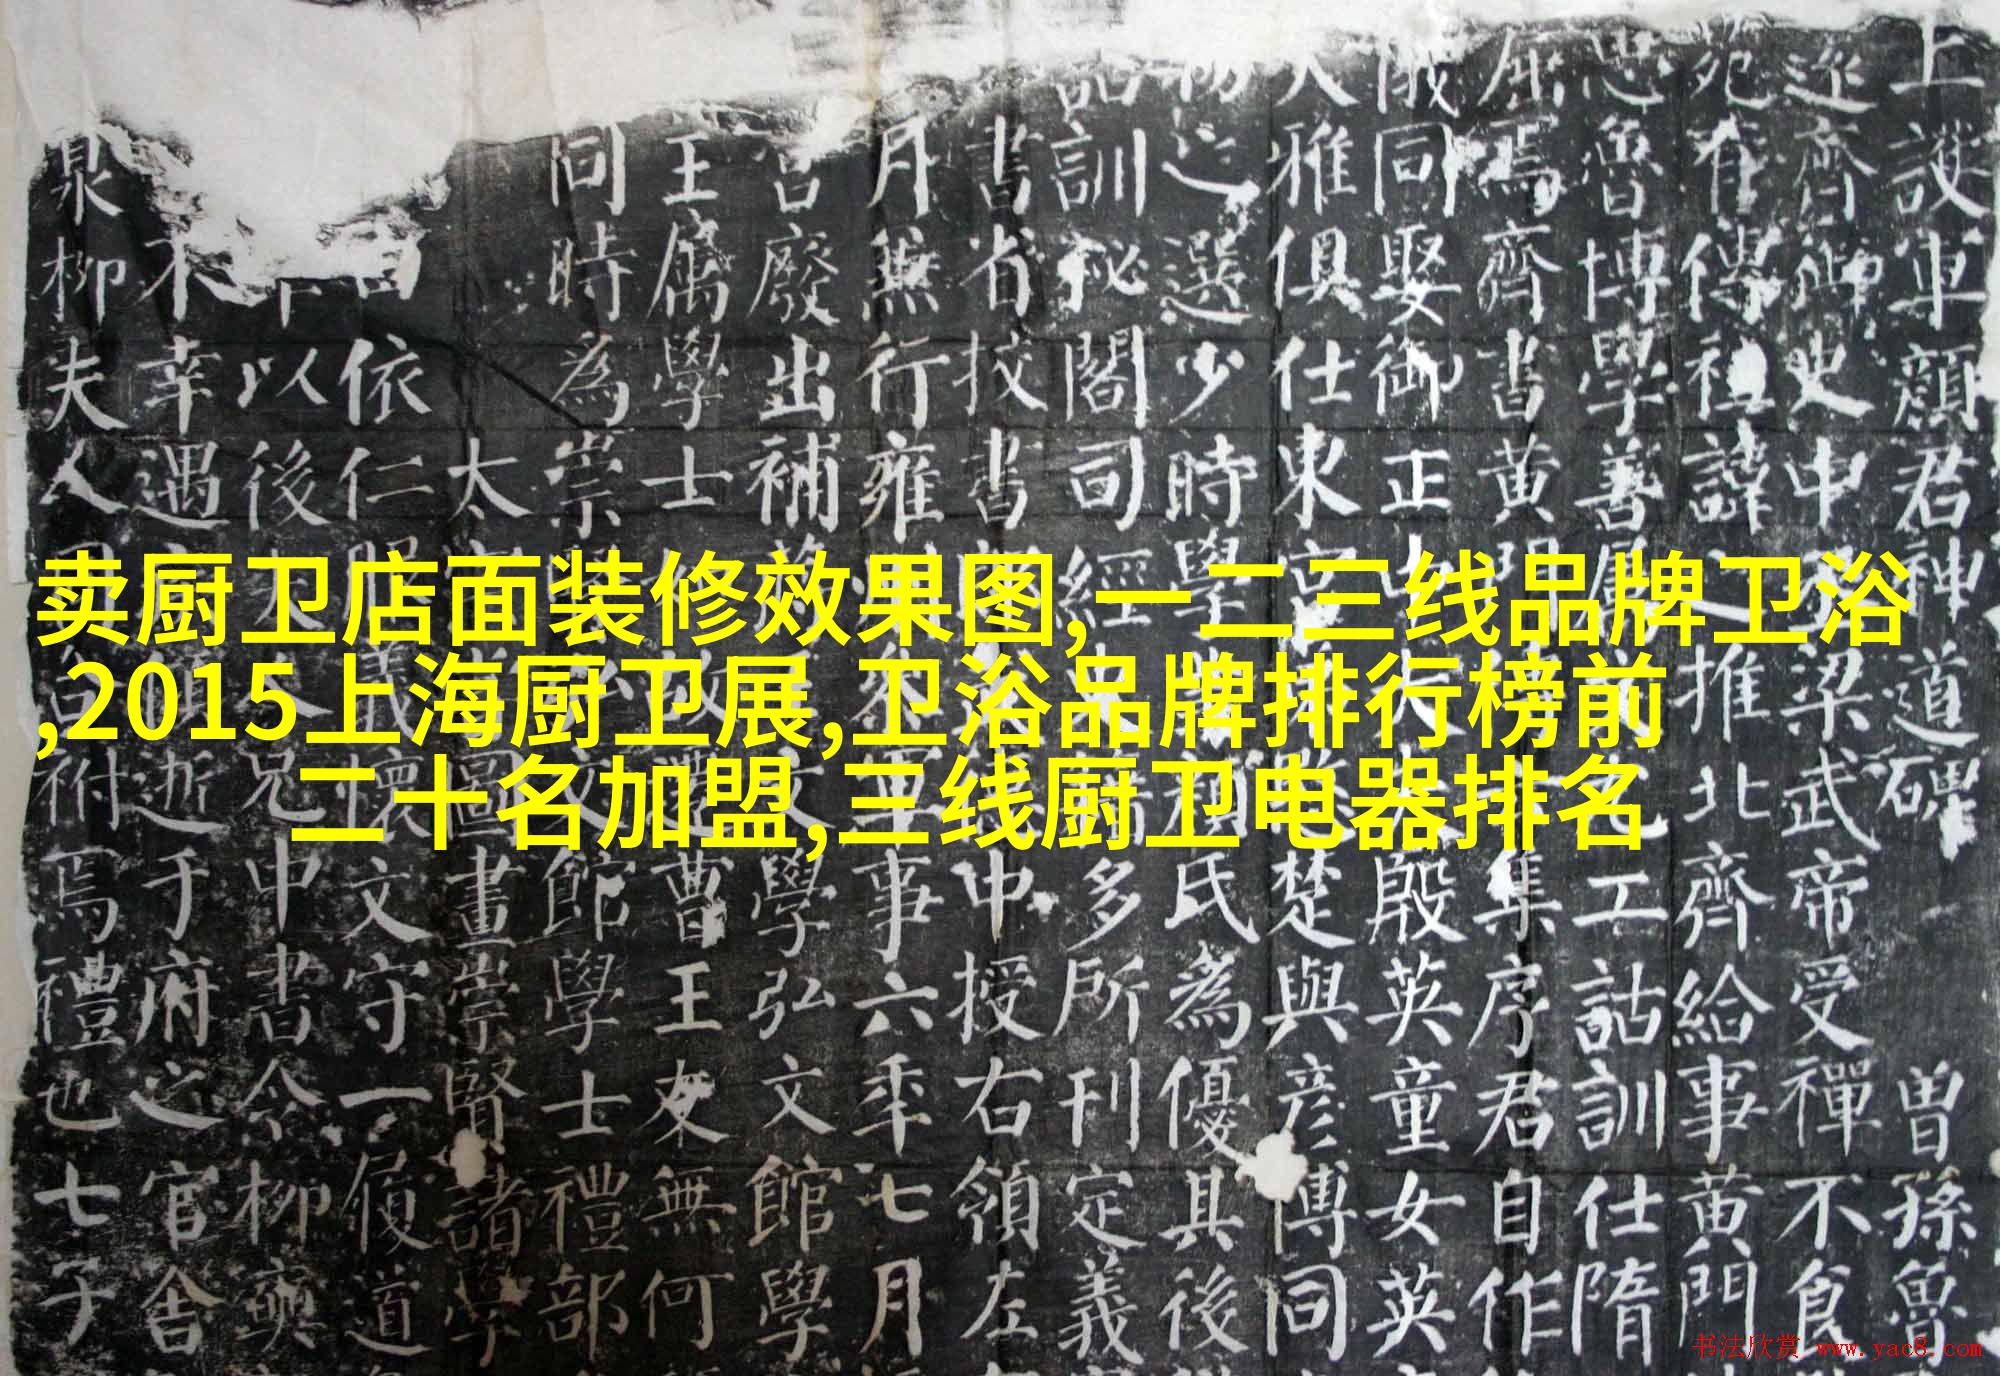 卖厨卫店面装修效果图,一二三线品牌卫浴
,2015上海厨卫展,卫浴品牌排行榜前
二十名加盟,三线厨卫电器排名
上護軍顏君神道碑 曾孫魯
逐齊御史中梁武帝受禪不食
苑有傳祖諱推北齊給事黄門
思魯博學善属工詁訓仕隋
屈焉齊書黄門集序君自作
俄同娶御正大殷英童女英
大雅俱仕東宫楚與彦博同
之選少時學氏為優其後
品訓秘閣司經多所刊定義
書省挍書中授右領左
月無行雍事六年七月
宫廢出補學弘文館學
王属學士曹王友無何
同時為崇館學士禮部
太圖畫崇賢諸學
依仁服義懷文守一履道
以後兄中書令柳奭
不幸遇逝于府之官舍
泉柳夫人合祔焉禮也七子
书法欣赏 www.yac8.com